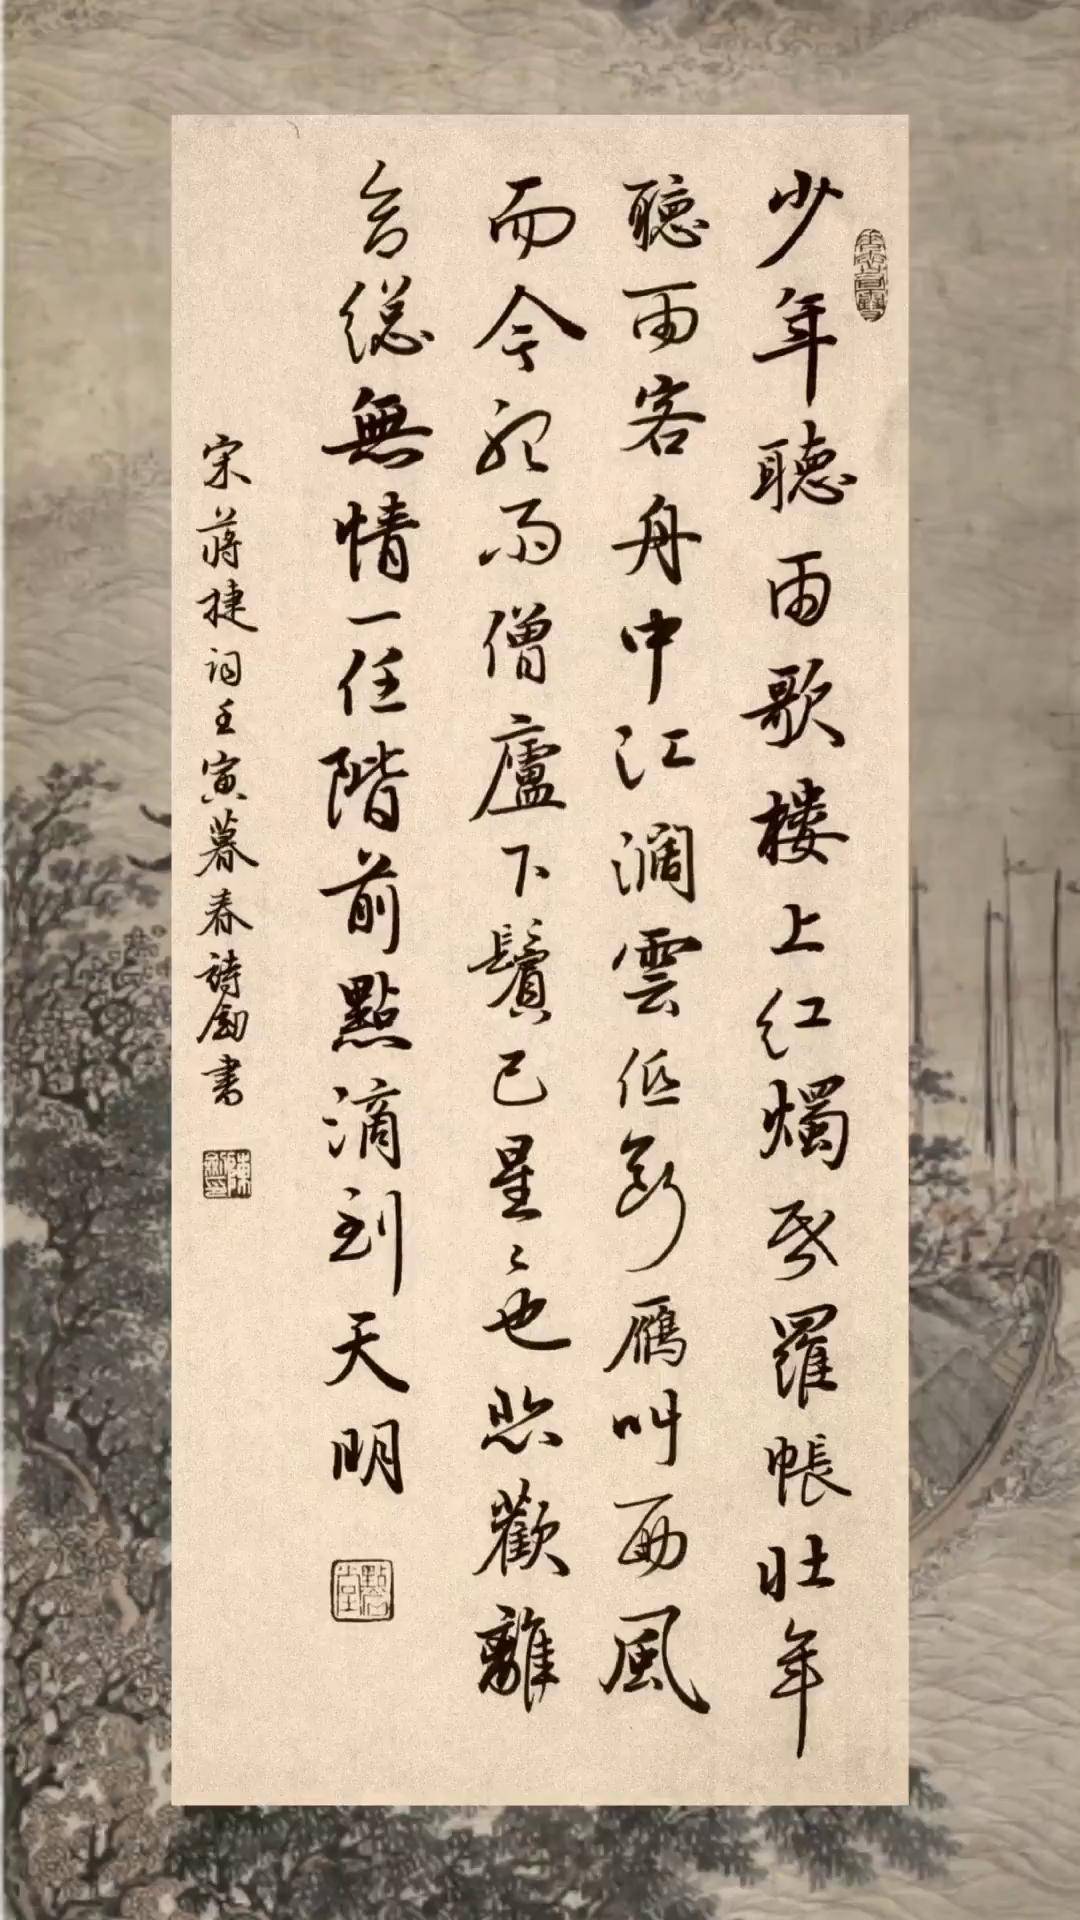 少年聽雨歌樓上紅燭昏羅帳壯年
聽雨客舟中江濶雲低斷雁叫西風
而今聽雨僧廬下鬢已星〻也悲歡離
合總無情一任階前點滴到天明
宋蔣捷詞壬寅暮春詩劍書